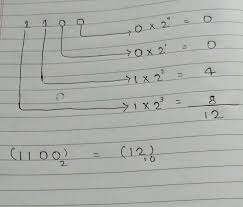 1 1 0 0
0 × 2⁰ = 0
0 × 2¹ = 0
1 × 2² = 4
1 × 2³ = 8
12
(1100)₂ = (12)₁₀